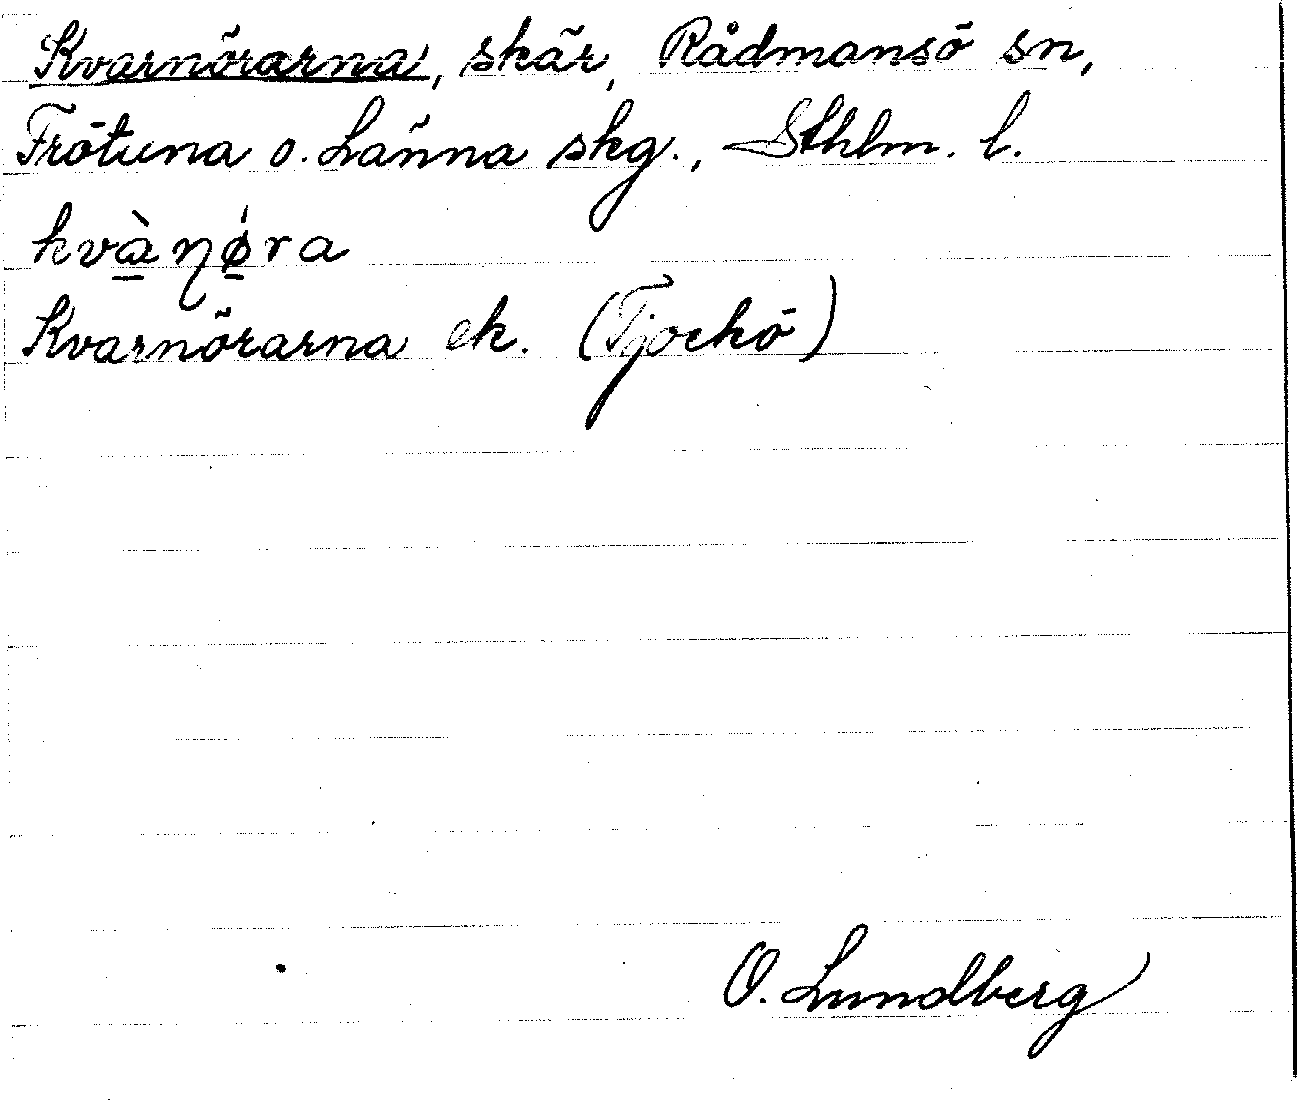 Kvarnörarna, skär, Rådmansö sn,
Frötuna o. Länna skg., Sthlm. l.
kvà̱ɳǿ̱ra
Kvarnörarna ek. (Tjockö)
O. Lundberg